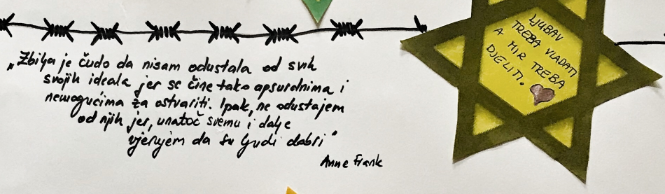 „Zbilja je čudo da nisam odustala od svih
svojih ideala jer se čine tako apsurdnima i
nemogućima za ostvariti. Ipak, ne odustajem
od njih jer, unatoč svemu i dalje
vjerujem da su ljudi dobri"
Anne Frank
LJUBAV
TREBA VLADATI
A MIR TREBA
DJELITI.